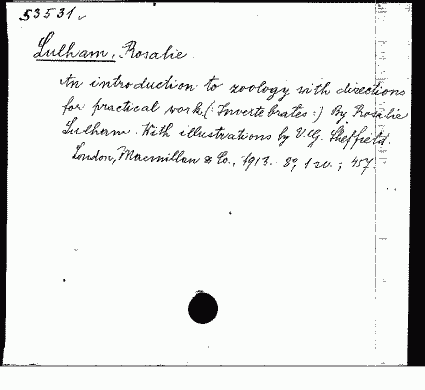 53531
Lulham, Rosalie
An introduction to zoology with directions
for practical work (: Invertebrates :) By Rosalie
Lulham. With illustrations by V.G. Sheffield.
London, Macmillan & Co., 1913. 8°, 1 sv.; 457